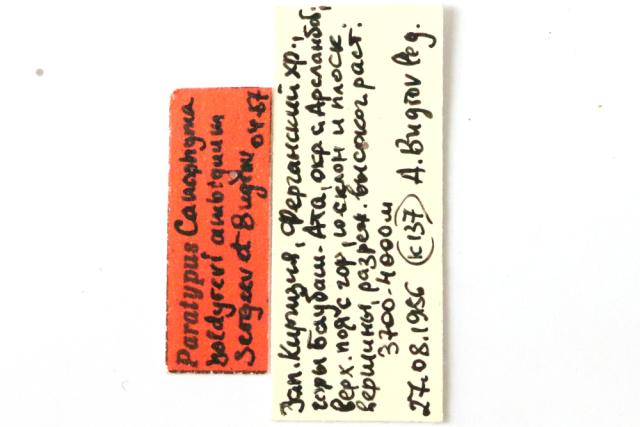 Paratypus Conophyma
boldyrevi ambiquum
Sergeev et Bugrov 04-87
Зап. Киргизия, Ферганский хр.,
горы Баубаш-Ата, окр. с. Арсланбоб,
верх. пояс гор, ю склон и плоск.
вершины, разреж. высоког. раст.
3700-4000м
27.08.1986 (К137) A. Bugrov leg.